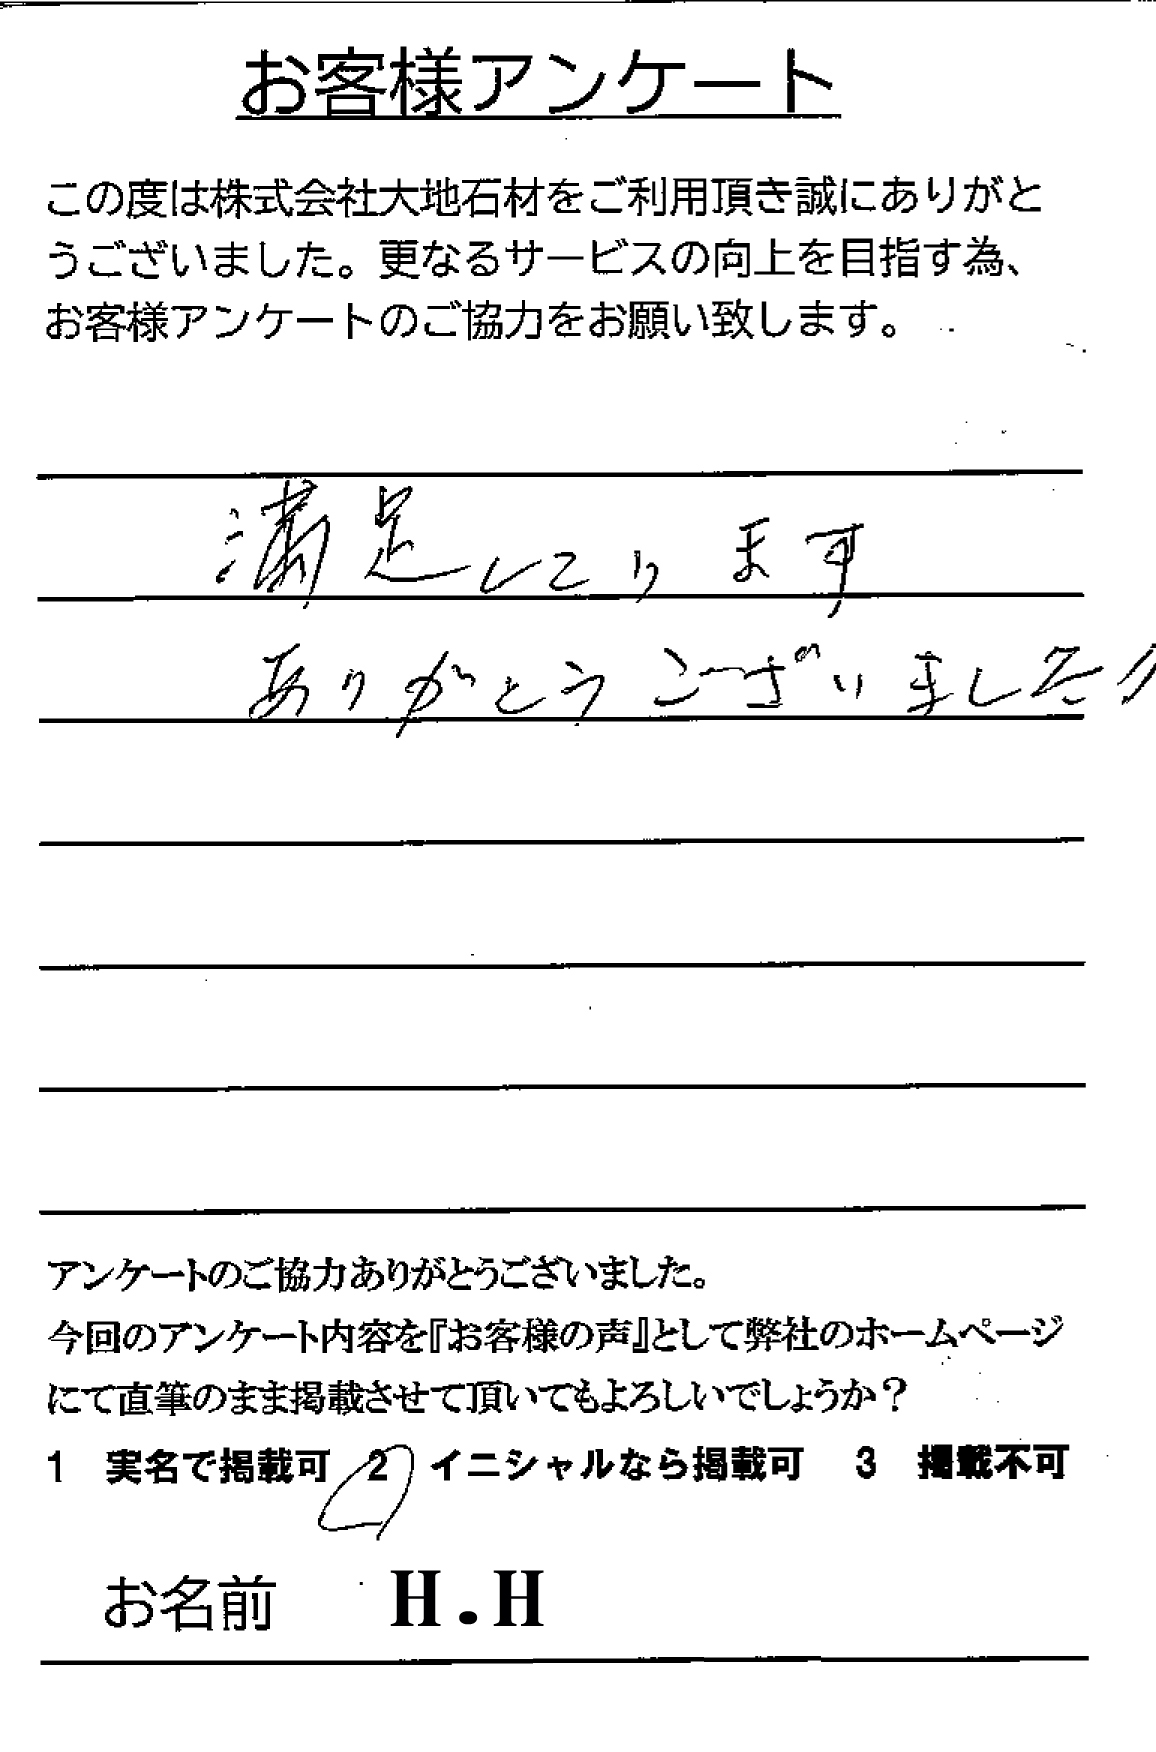 お客様アンケート
この度は株式会社大地石材をご利用頂き誠にありがと
うございました。更なるサービスの向上を目指す為、
お客様アンケートのご協力をお願い致します。
満足しております
ありがとうございました
アンケートのご協力ありがとうございました。
今回のアンケート内容を『お客様の声』として弊社のホームページ
にて直筆のまま掲載させて頂いてもよろしいでしょうか？
1 実名で掲載可 2 イニシャルなら掲載可 3 掲載不可
お名前 H.H